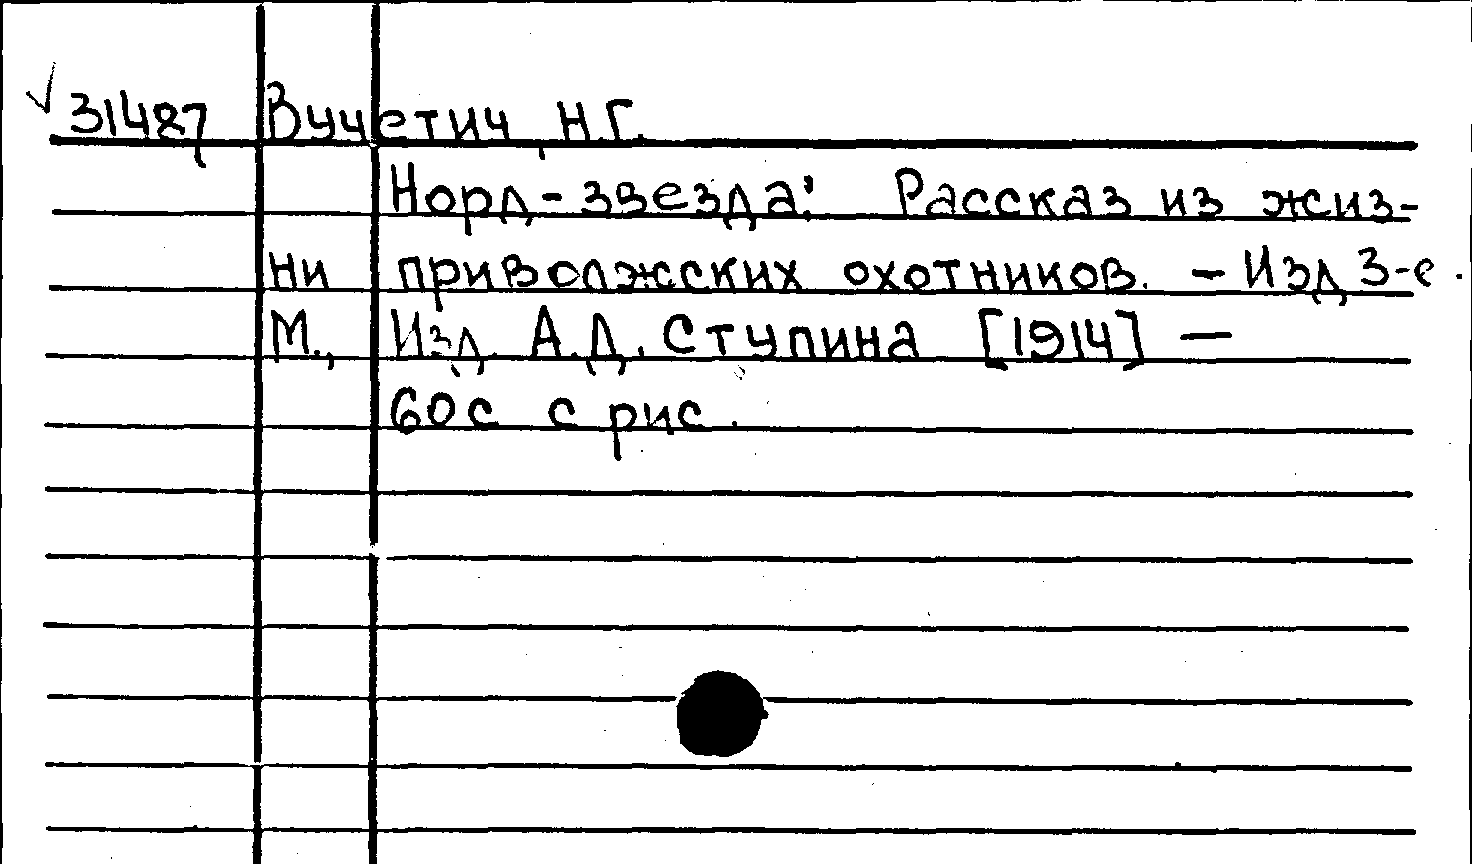 √ 31487 Вучетич, Н.Г.
Норд-звезда: Рассказ из жиз-
ни приволжских охотников. - Изд 3-е.
М., Изд. А.Д. Ступина [1914] —
60с с рис.